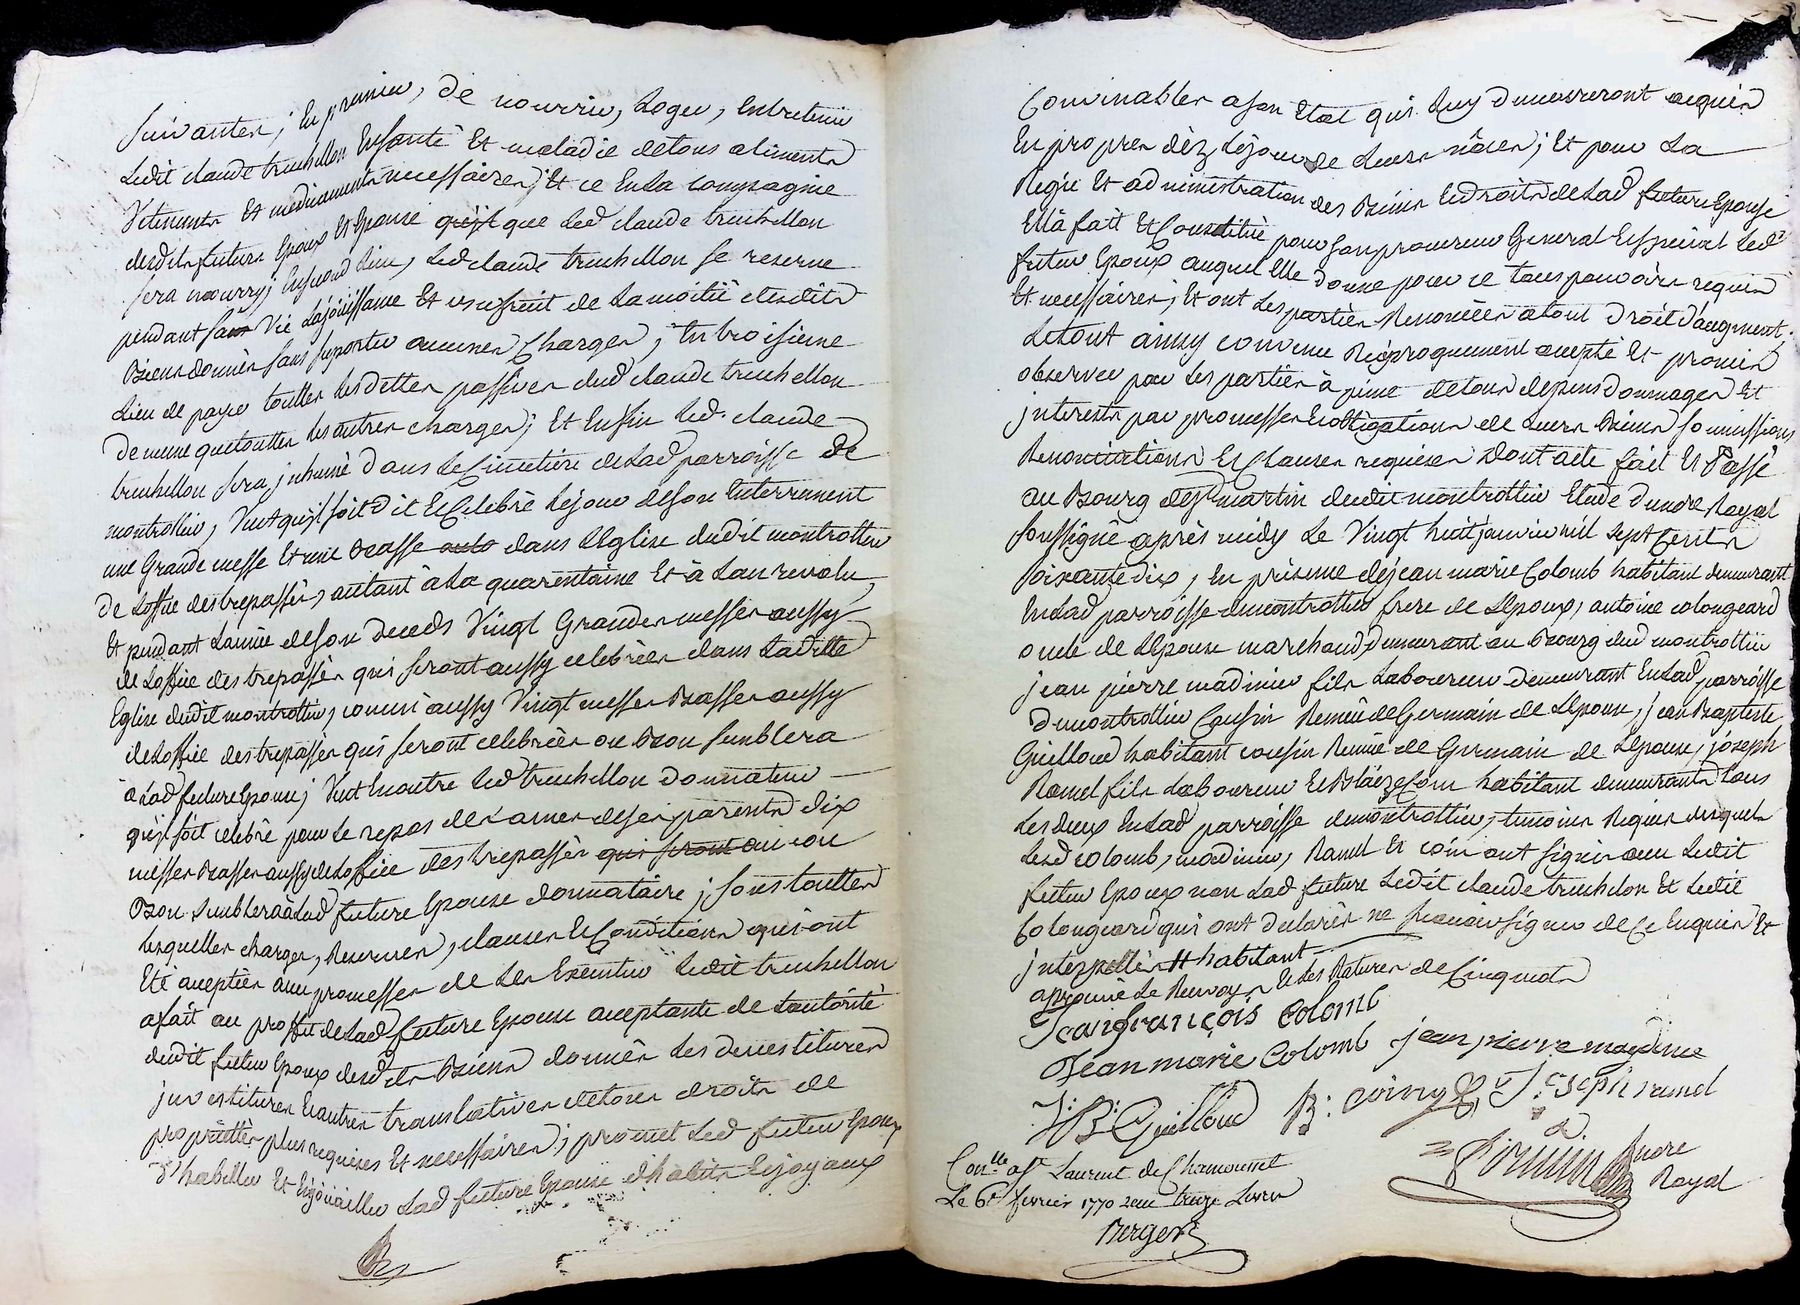 suivantes; En premier, de nourrir, Loger, Entretenir
Ledit claude truchellon En santé Et maladie de tous aliments
Vetements Et medicaments necessaires; Et ce En la compagnie
desdits futurs Epoux Et Epouse qu'il que led claude truchellon
sera nourry; En second Lieu, Led claude truchellon se reserve
pendant sa Vie La jouissance Et usufruit de La moitié desdits
Biens donnés sans suporter aucunes Charges; En troisieme
Lieu de payer touttes les dettes passives dud claude truchellon
de meme que touttes les autres charges; Et Enfin Led. claude
truchellon sera jnhumé dans Le Cimetiere de Lad parroisse de
montrottier, Veut qu'il soit dit Et Celebré Le jour de son Enterrement
une Grande messe Et une Basse auto dans L'Eglise dudit montrottier
de L'office des trepassés, autant à La quarentaine Et à L'an revolu,
Et pendant L'année de son Deceds Vingt Grandes messes aussy
de L'office des trepassés qui seront aussy celebrées dans Ladite
Eglise dudit montrottier, comm'aussy Vingt messes Basses aussy
de L'office des trepassés qui seront celebrées ou Bon semblera
à Lad future Epouse; Veut En outre Led truchellon donnateur
qu'il soit celebré pour Le repos de L'ames de ses parents dix
messes Basses aussy de L'office des trepassés qui seront aui ou
Bon semblera à Lad future Epouse donnataire; sous touttes
Lesquelles charges, Reserves, clauses Et Conditions qui ont
Eté aceptées avec promesses de Les Executer Ledit truchellon
a fait au proffit de Lad future Epouse aceptante de L'autorité
dudit futur Epoux desdits Biens donnés Les devestitures
jnvestitures Et autres translatives de tous droits de
proprietté plus requises Et necessaires; promet Led futur Epoux
d'habiller Et Enjouailler Lad future Epouse d'habits Et joyaux
Convenables a son Etat qui Luy demeureront acquis
En propres dèz Le jour de Leurs nôces; Et pour La
Regie Et administration des Biens Et droits de Lad future Epouse
Ella fait Et Constitué pour son procureur General Et special Led
futur Epoux auquel Elle donne pour ce tous pouvoirs requis
Et necessaires; Et ont Les parties Renoncées a tout droit d'augment;
Letout ainsy convenu Réciproquement acepté Et promis
observer par Les parties à peine de tous depens dommages Et
jnterests par promesses Et obligations de Leurs Biens soumissions
Renonciations Et Clauses requises Dont acte fait Et Passé
au Bourg de St martin dudit montrottier Etude du nore Royal
soussigné après midy Le Vingt huit janvier mil sept Cents
soixante dix, En presence de jean marie Colomb habitant demeurant
En Lad parroisse de montrottier frere de L'Epoux, antoine colongeard
oncle de L'Epouse marchand demeurant au Bourg dud montrottier
jean pierre madinier fils Laboureur demeurant En Lad parroisse
de montrottier Cousin Remué de Germain de L'Epouse, jean Baptiste
Guilloud habitant cousin Remué de Germain de L'Epouse, joseph
Ramel fils Laboureur Et Blaize Coin habitant demeurants tous
Les deux En Lad parroisse de montrottier, temoins Requis desquels
Lesd colomb, madinier, Ramel Et coin ont signés avec Ledit
futur Epoux non Lad future Ledit claude truchelon Et Ledit
Colongeard qui ont declarés ne sçavoir signer de Ce Enquis Et
jnterpellés # habitant
aprouvé Le Renvoy Et Les Ratures de Cinq mots
Jean françois colomb
Jean marie Colomb jean pierre madinie
J: B: Guilloud B: coing & Joseph ramel
Nore
Royal
Con.lle a St Laurent de Chamousset
Le 6e fevrier 1770 reçu treize Livres
Berger